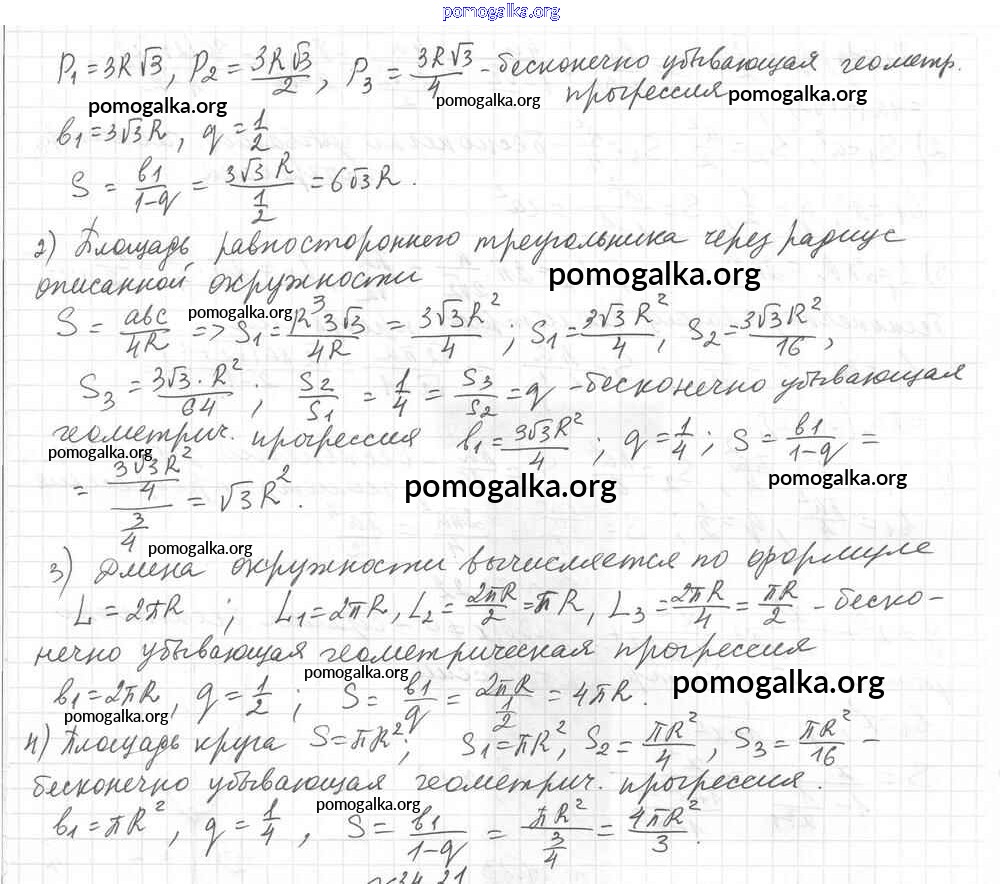 pomogalka.org
P₁ = 3R√3, P₂ = 3R√3/2, P₃ = 3R√3/4 - бесконечно убывающая геометр.
pomogalka.org pomogalka.org прогрессия pomogalka.org
b₁ = 3√3R, q = 1/2
S = b1/(1-q) = 3√3R/(1/2) = 6√3R.
2) Площадь равностороннего треугольника через радиус
описанной окружности pomogalka.org
pomogalka.org
S = abc/4R => S₁ = R³3√3/4R = 3√3R²/4 ; S₁ = 3√3R²/4, S₂ = 3√3R²/16,
S₃ = 3√3·R²/64 ; S₂/S₁ = 1/4 = S₃/S₂ = q - бесконечно убывающая
геометрич. прогрессия b₁ = 3√3R²/4 ; q = 1/4 ; S = b1/(1-q) =
pomogalka.org pomogalka.org
= (3√3R²/4)/(3/4) = √3R². pomogalka.org
pomogalka.org
3) Длина окружности вычисляется по формуле
L = 2πR ; L₁ = 2πR, L₂ = 2πR/2 = πR, L₃ = 2πR/4 = πR/2 - беско-
нечно убывающая геометрическая прогрессия
pomogalka.org pomogalka.org
b₁ = 2πR, q = 1/2 ; S = b1/q = 2πR/(1/2) = 4πR.
pomogalka.org
4) Площадь круга S = πR² ; S₁ = πR², S₂ = πR²/4, S₃ = πR²/16 -
бесконечно убывающая геометрич. прогрессия.
pomogalka.org
b₁ = πR², q = 1/4, S = b1/(1-q) = πR²/(3/4) = 4πR²/3.
24.21